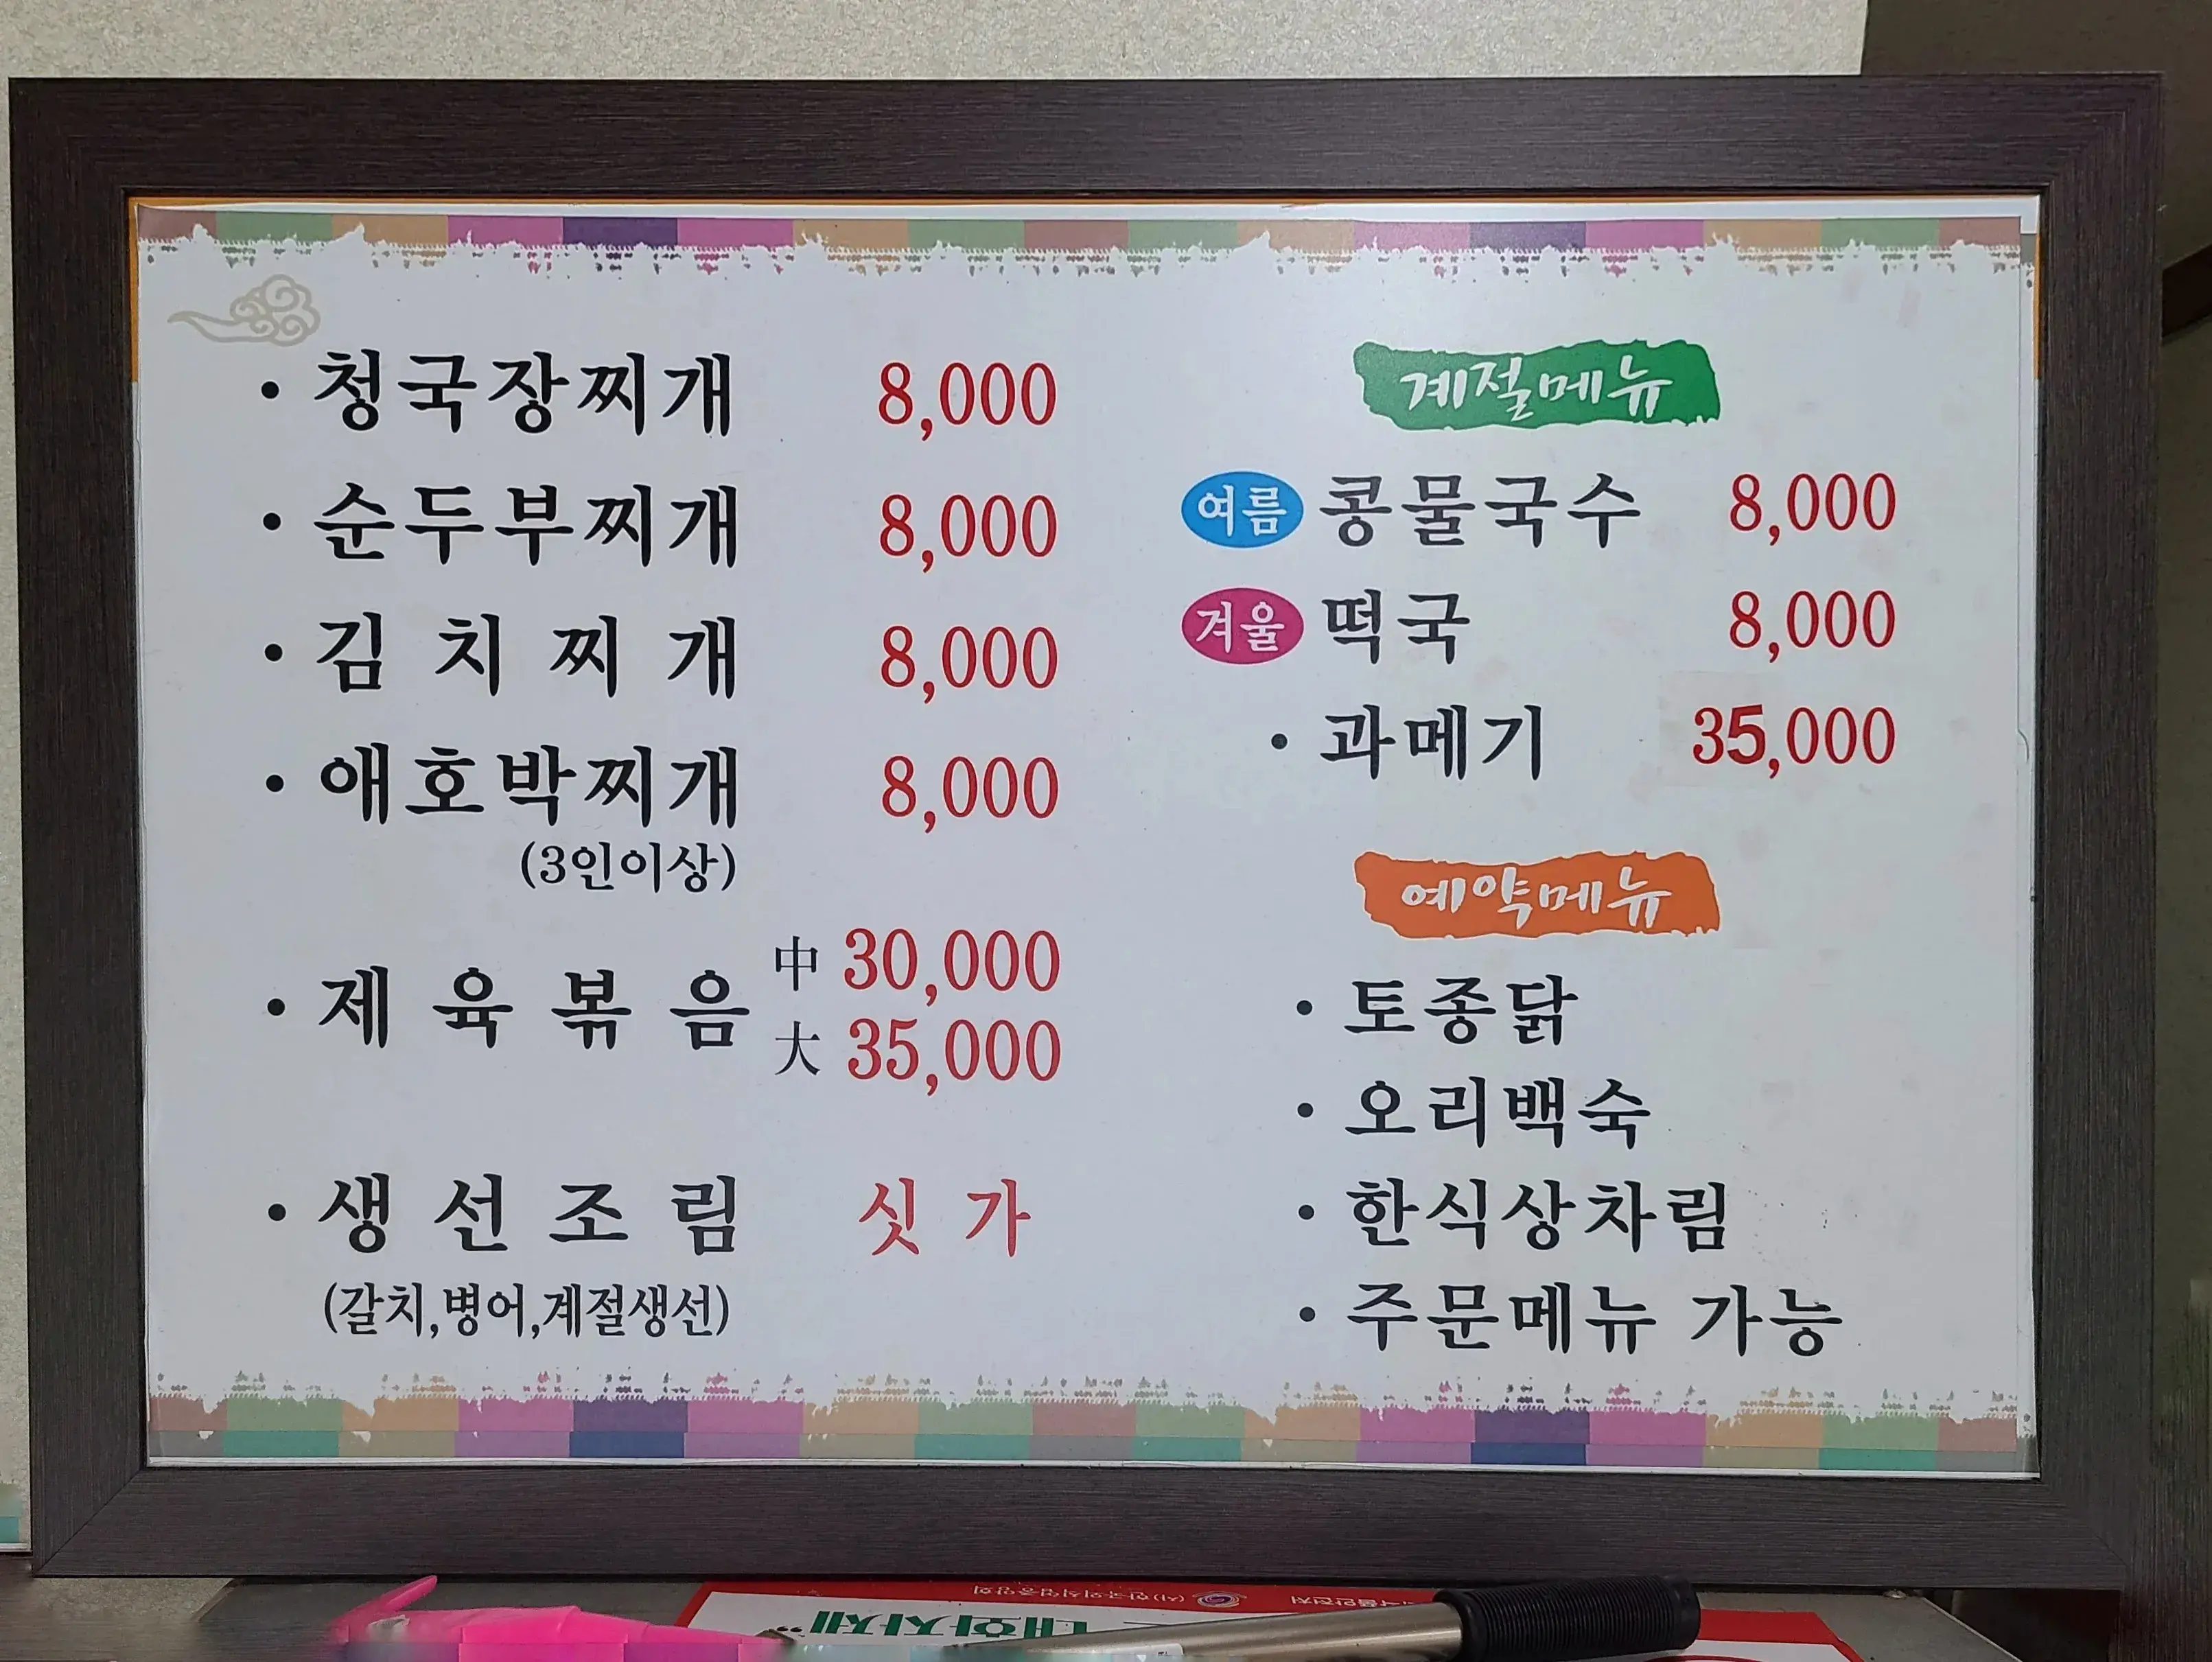 청국장찌개 8,000
순두부찌개 8,000
김치찌개 8,000
애호박찌개 8,000
(3인이상)
제육볶음 中 30,000
大 35,000
생선조림 싯가
(갈치,병어,계절생선)
계절메뉴
여름 콩물국수 8,000
겨울 떡국 8,000
과메기 35,000
예약메뉴
토종닭
오리백숙
한식상차림
주문메뉴 가능
(사)한국외식업중앙회